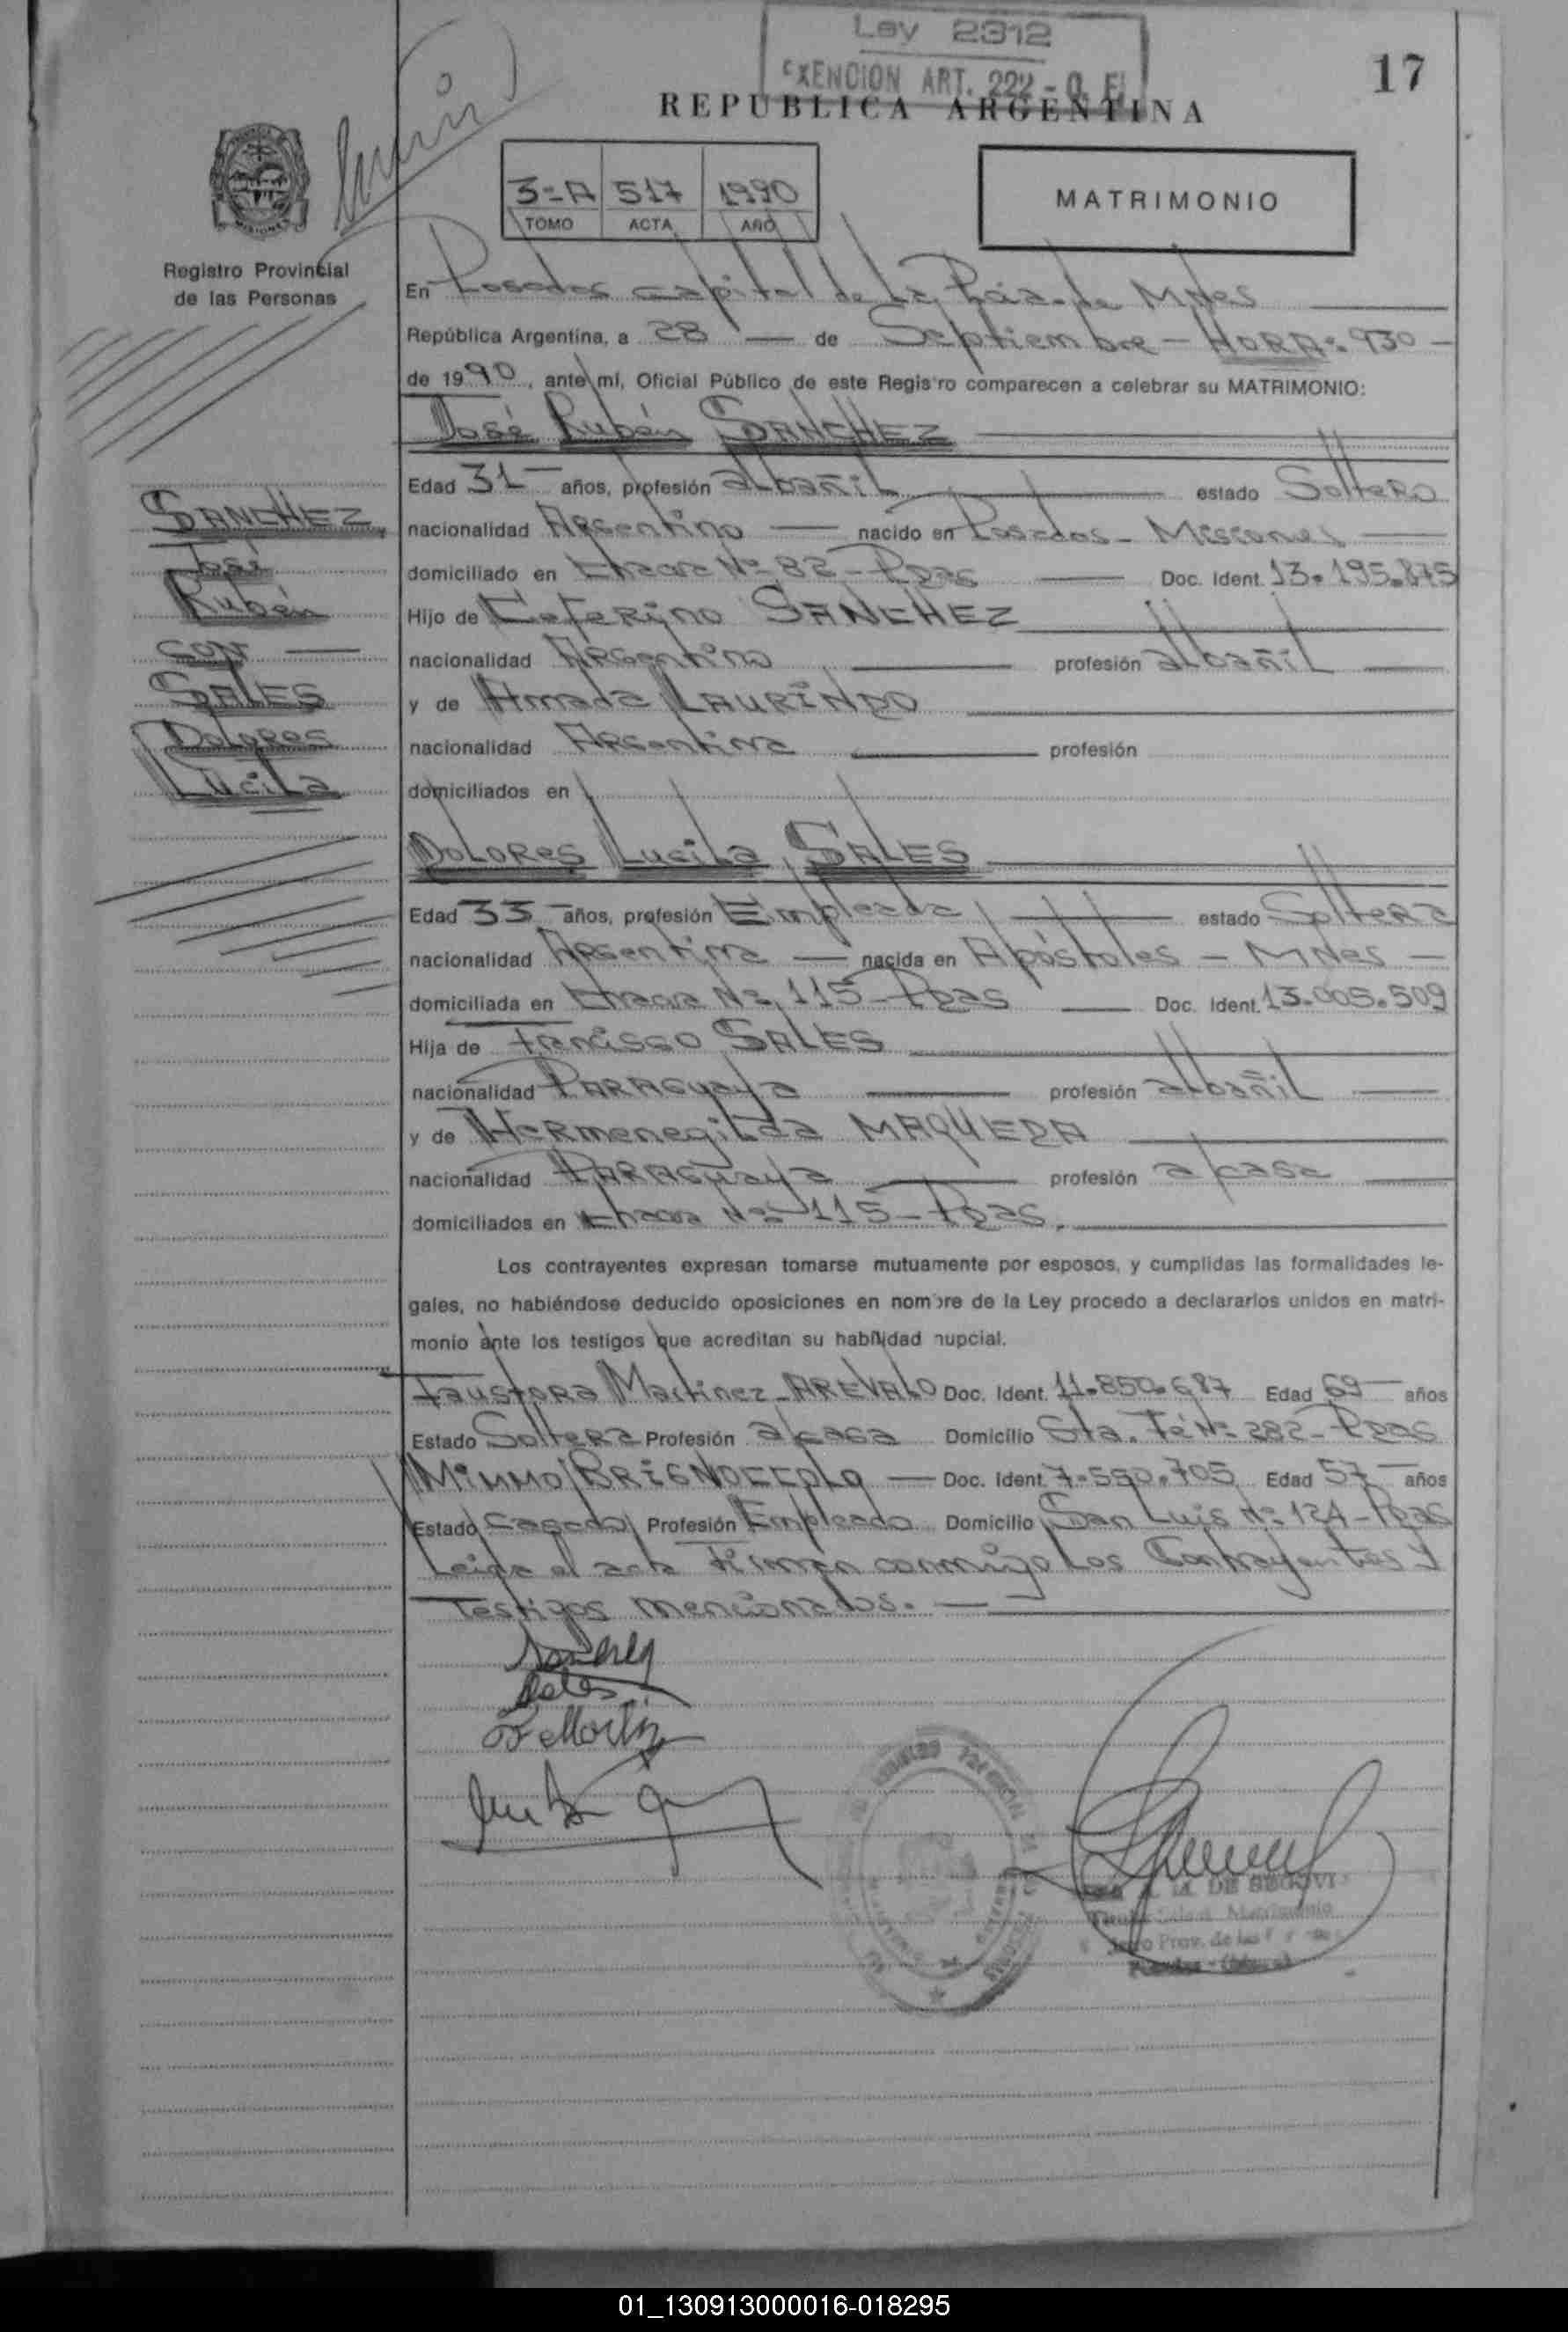 Ley 2312
EXENCION ART. 222 - O. F.
17
REPUBLICA ARGENTINA
3=A 517 1990
TOMO ACTA AÑO
MATRIMONIO
Registro Provincial
de las Personas
En Posadas capital de la Pcia. de Mnes
República Argentina, a 28 — de Septiembre - HORA: 930 -
de 1990, ante mí, Oficial Público de este Registro comparecen a celebrar su MATRIMONIO:
José Rubén SANCHEZ
Edad 31 años, profesión albañil estado Soltero
nacionalidad Argentino — nacido en Posadas - Misiones
domiciliado en Chacra Nº 82 - Pdas Doc. Ident. 13.195.875
Hijo de Ceferino SANCHEZ
nacionalidad Argentino profesión albañil
y de Amada LAURINDO
nacionalidad Argentina profesión
domiciliados en
SANCHEZ
José
Rubén
con —
SALES
Dolores
Lucila
Dolores Lucila SALES
Edad 33 años, profesión Empleada estado Soltera
nacionalidad Argentina — nacida en Apóstoles - Mnes -
domiciliada en Chacra Nº 115 - Pdas Doc. Ident. 13.005.509
Hija de Francisco SALES
nacionalidad Paraguaya profesión albañil
y de Hermenegilda MAQUEDA
nacionalidad Paraguaya profesión a/casa
domiciliados en Chacra Nº 115 - Pdas.
Los contrayentes expresan tomarse mutuamente por esposos, y cumplidas las formalidades le-
gales, no habiéndose deducido oposiciones en nombre de la Ley procedo a declararlos unidos en matri-
monio ante los testigos que acreditan su habilidad nupcial.
Faustora Martinez - AREVALO Doc. Ident. 11.850.687 Edad 69 años
Estado Soltera Profesión a/casa Domicilio Sta. Fé Nº 282 - Pdas
Mimmo BRIGNOCCOLO — Doc. Ident. 7.550.705 Edad 57 años
Estado Casado Profesión Empleado Domicilio San Luis Nº 124 - Pdas
Leida el acta firman conmigo los Contrayentes y
Testigos mencionados. —
Sanchez
Sales
F Martinez
DE SEGOVI
Matrimonio
Prov. de las
01_130913000016-018295